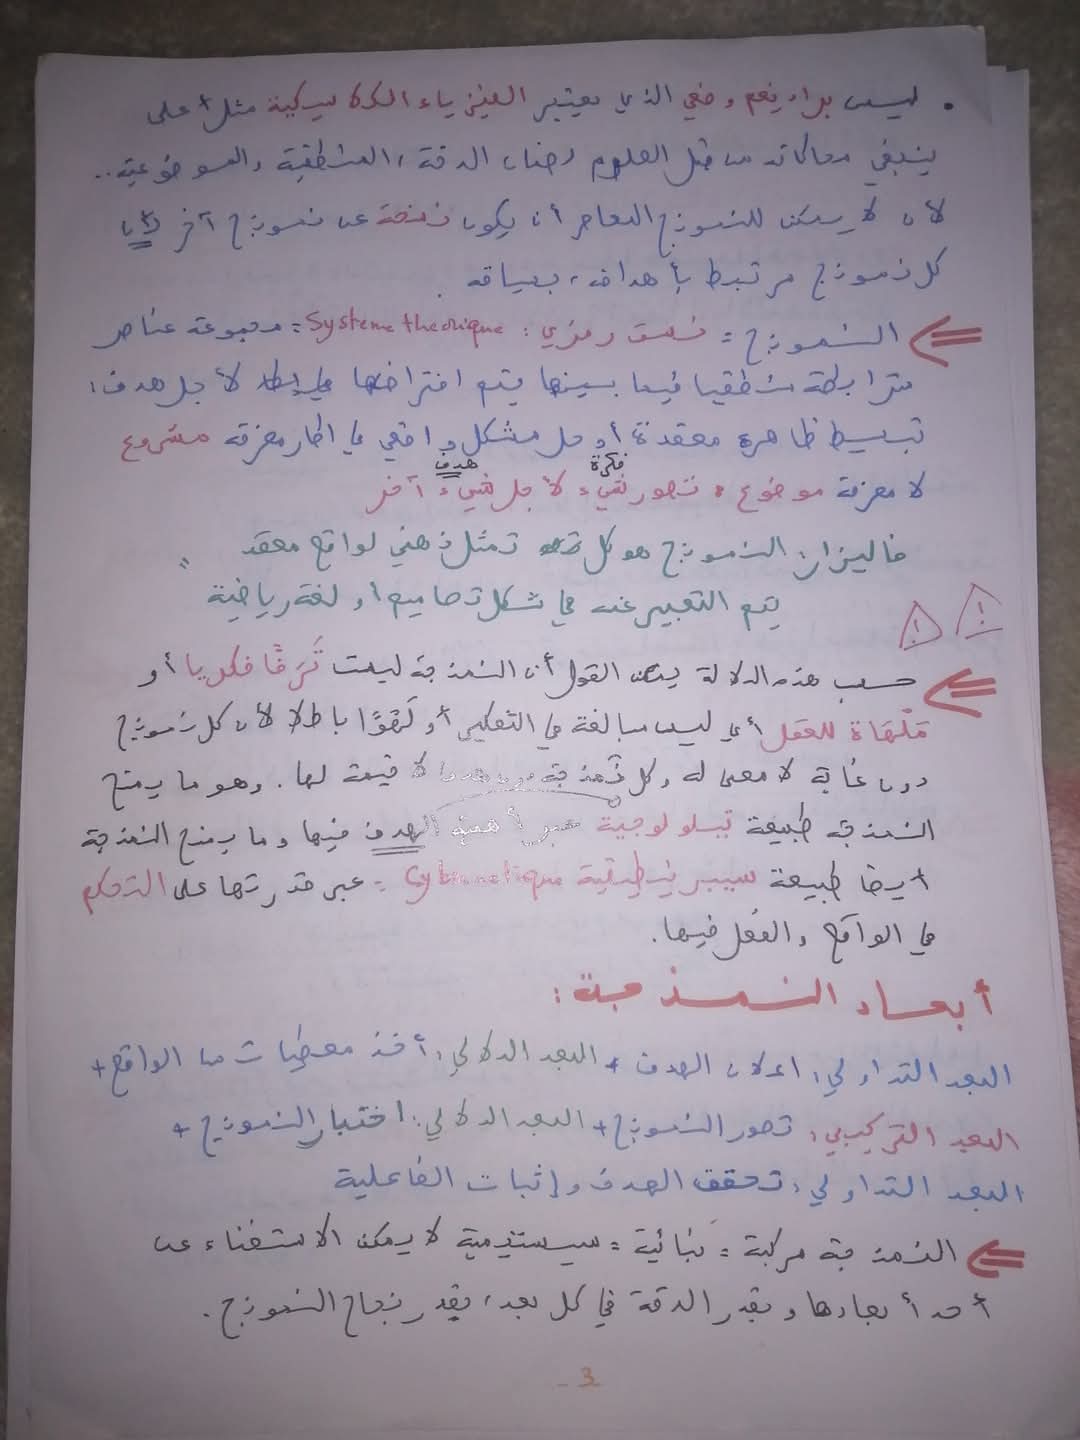 • ليس براديغم وضعي الذي يعتبر الفيزياء الكلاسيكية مثل أعلى
ينبغي محاكاته من قبل العلوم لضمان الدقة، المنطقية والموضوعية..
لأن لا يمكن للنموذج المعاصر أن يكون نسخة عن نموذج آخر لأن
كل نموذج مرتبط بأهداف، بسياقه.
النموذج = نسق رمزي: Systeme theorique = مجموعة عناصر
مترابطة منطقيا فيما بينها يتم افتراضها لأجل هدف:
تبسيط ظاهرة معقدة أو حل مشكل واقعي في اطار معرفة مشروع
فكرة هدف
لا معرفة موضوع = تصور شيء لأجل شيء آخر
فاليزار: النموذج هو كل تمثل ذهني لواقع معقد
يتم التعبير عنه في شكل تصاميم أو لغة رياضية "
! !
حسب هذه الدلالة يمكن القول أن النمذجة ليست تَرَفًا فكريا أو
مَلْهَاة للعقل أي ليس مبالغة في التفكير أو لَهْوًا باطلا لأن كل نموذج
دون غاية لا معنى له وكل نمذجة دون هدف لا قيمة لها. وهو ما يمنح
النمذجة طبيعة تيلولوجية عبر أهمية الهدف فيها وما يمنح النمذجة
أيضا طبيعة سيبرنيطيقية Cybernetique = عبر قدرتها على التحكم
في الواقع والفعل فيها.
أبعاد النمذجة:
البعد التداولي: اعلان الهدف + البعد الدلالي: أخذ معطيات من الواقع +
البعد التركيبي: تصور النموذج + البعد الدلالي: اختبار النموذج +
البعد التداولي: تحقق الهدف وإثبات الفاعلية
النمذجة مركبة = بنائية = سيستيمية لا يمكن الاستغناء عن
أحد أبعادها وبقدر الدقة في كل بعد، بقدر نجاح النموذج.
- 3